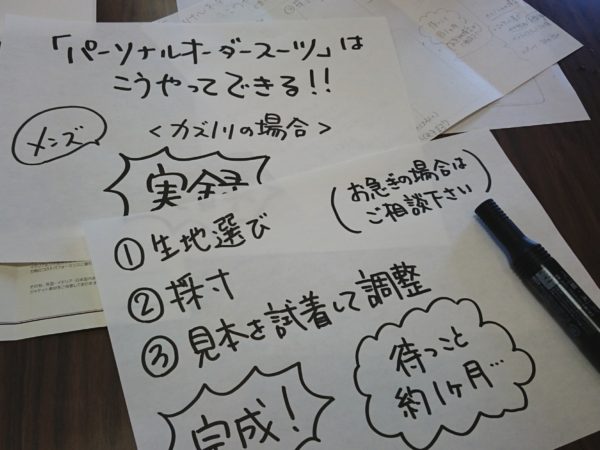 「パーソナルオーダースーツ」は
こうやってできる!!
メンズ
<カズノリの場合>
実録
①生地選び
(お急ぎの場合は
ご相談下さい)
②採寸
③見本を試着して調整
待つこと
約1ヶ月…
完成!